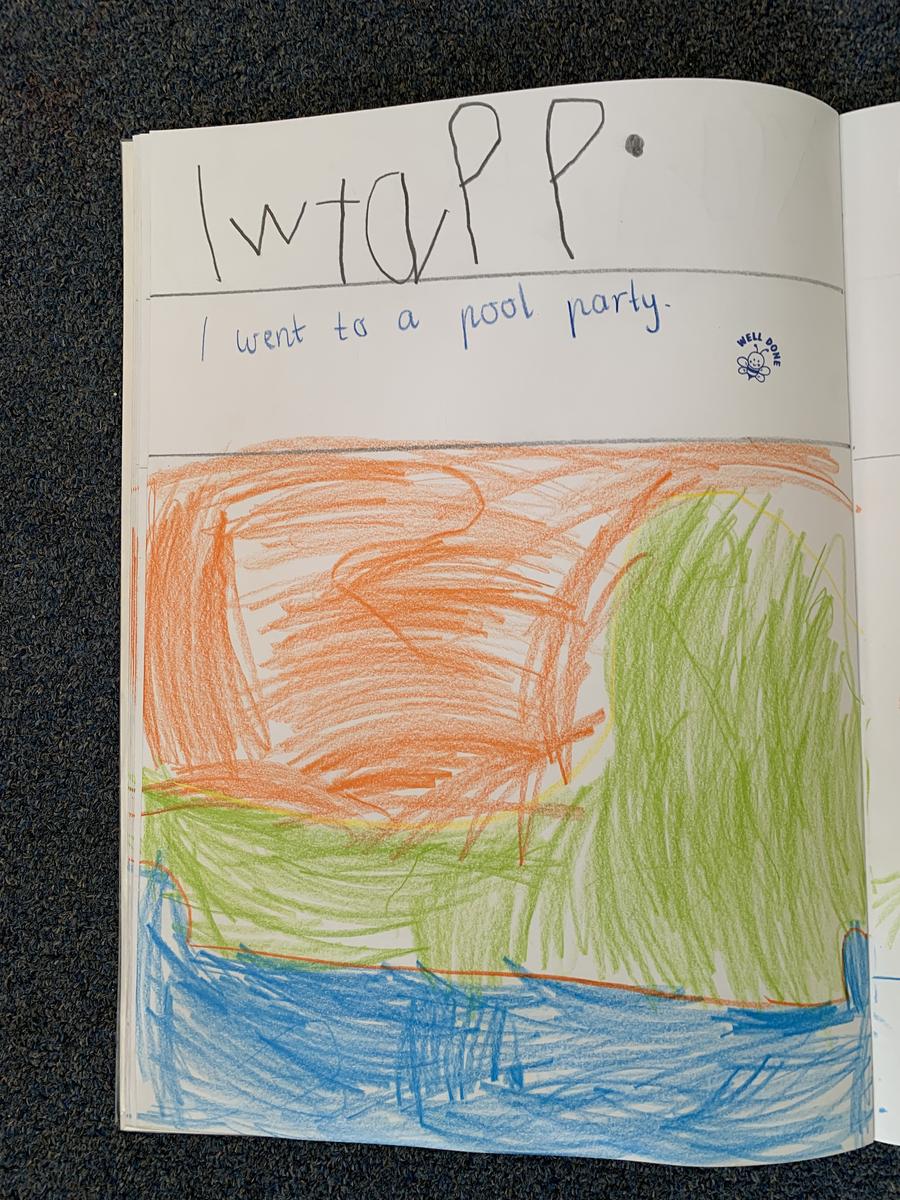 I w t a P P .
I went to a pool party.
WELL DONE